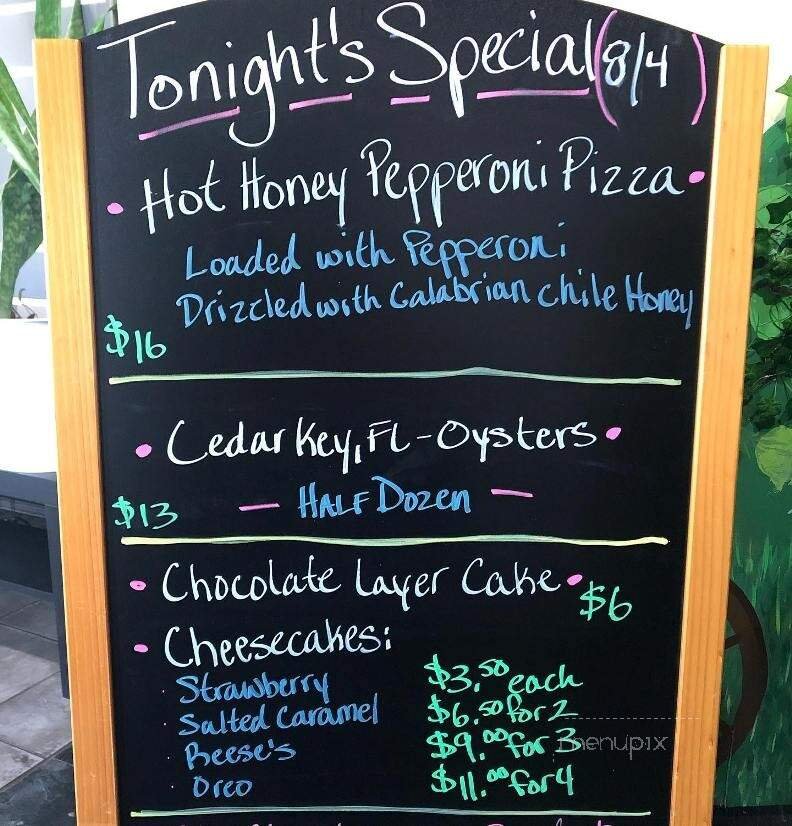 Tonight's Special (8/4)
• Hot Honey Pepperoni Pizza •
Loaded with Pepperoni
Drizzled with Calabrian chile Honey
$16
• Cedar Key, FL - Oysters •
$13 — HALF DOZEN —
• Chocolate Layer Cake • $6
• Cheesecakes:
· Strawberry $3.50 each
· Salted Caramel $6.50 for 2
· Reese's $9.00 for 3
· Oreo $11.00 for 4
menupix